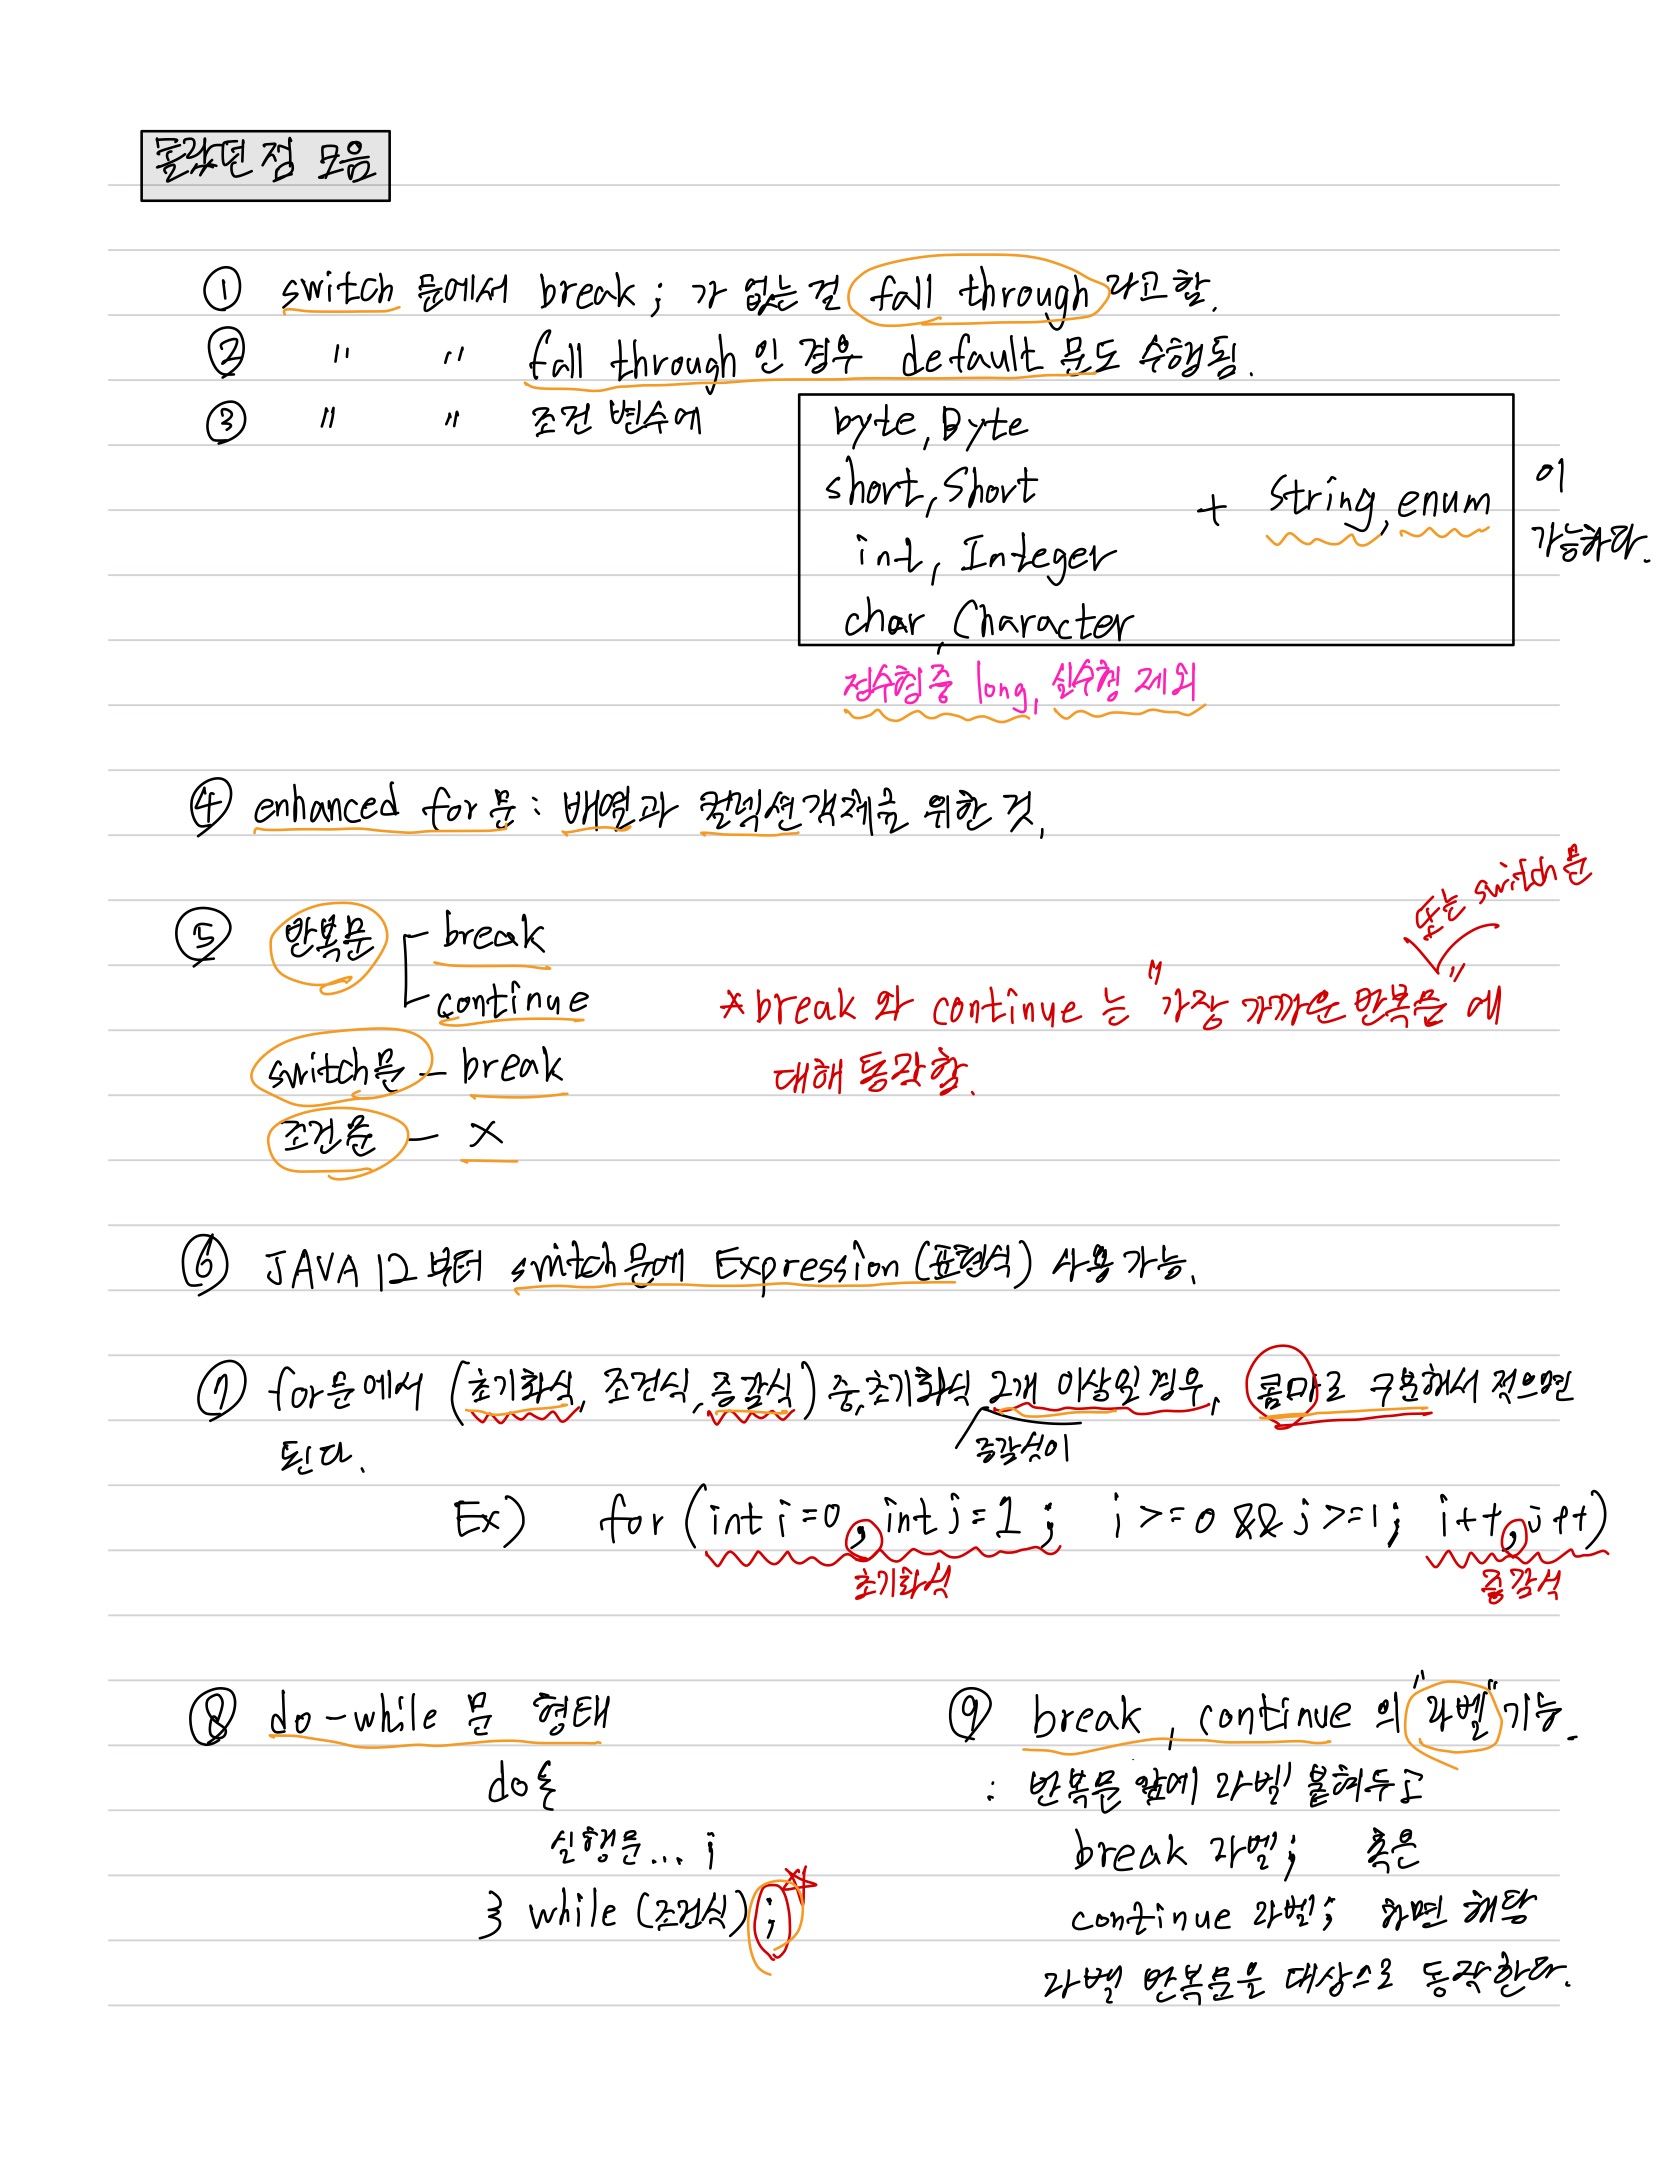 몰랐던 점 모음
① switch 문에서 break; 가 없는 걸 fall through 라고 함.
② " " fall through 인 경우 default 문도 수행됨.
③ " " 조건 변수에
byte, Byte
short, Short
int, Integer
char, Character
+ String, enum
이
가능하다.
정수형 중 long, 실수형 제외
④ enhanced for 문 : 배열과 컬렉션 객체를 위한 것.
⑤ 반복문 break
continue
switch문 - break
조건문 - X
또는 switch 문
* break 와 continue 는 "가장 가까운 반복문" 에
대해 동작함.
⑥ JAVA 12 부터 switch 문에 Expression (표현식) 사용 가능.
⑦ for문에서 (초기화식, 조건식, 증감식) 중, 초기화식 2개 이상일 경우, 콤마로 구분해서 적으면
증감식이
된다.
Ex) for (int i=0, int j=1; i>=0 && j>=1; i++, j++)
초기화식
증감식
⑧ do-while 문 형태
do {
실행문...;
} while (조건식);
⑨ break, continue 의 "라벨" 기능.
: 반복문 앞에 라벨 붙여두고
break 라벨; 혹은
continue 라벨; 하면 해당
라벨 반복문을 대상으로 동작한다.